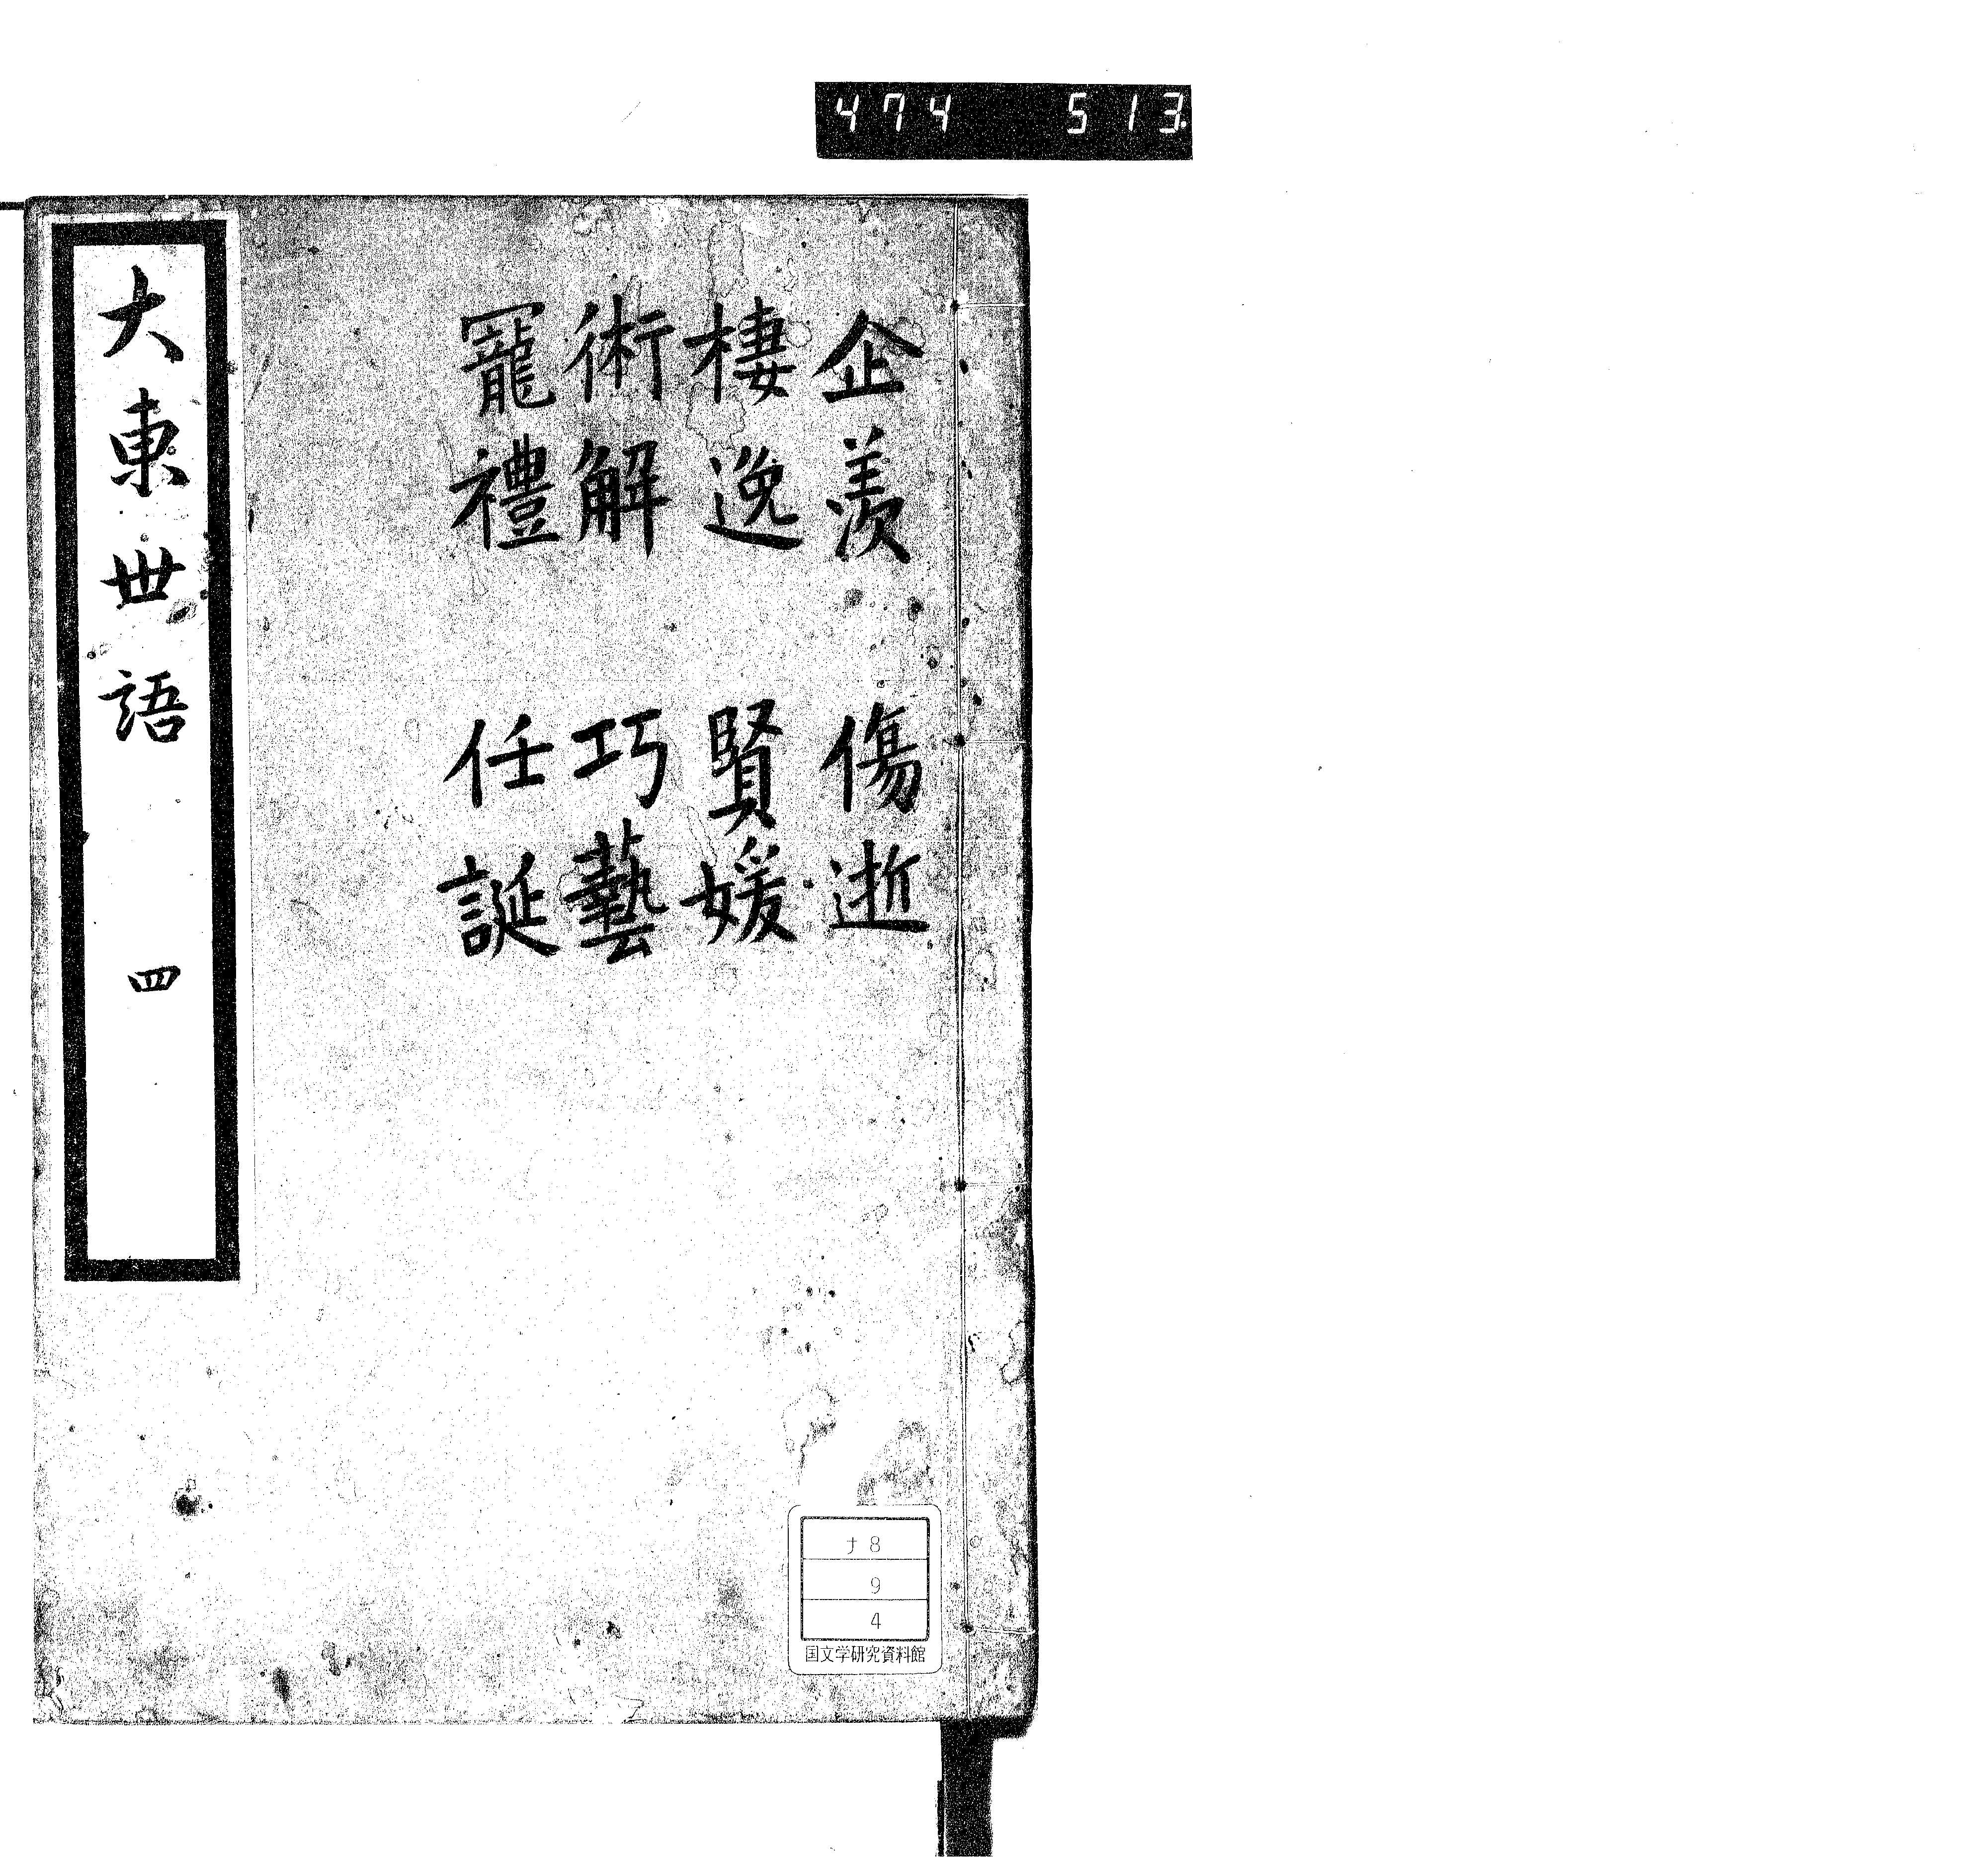 474 513.
企羨 傷逝
棲逸 賢媛
術解 巧藝
寵禮 任誕
大東世語 四
ナ8
9
4
国文学研究資料館